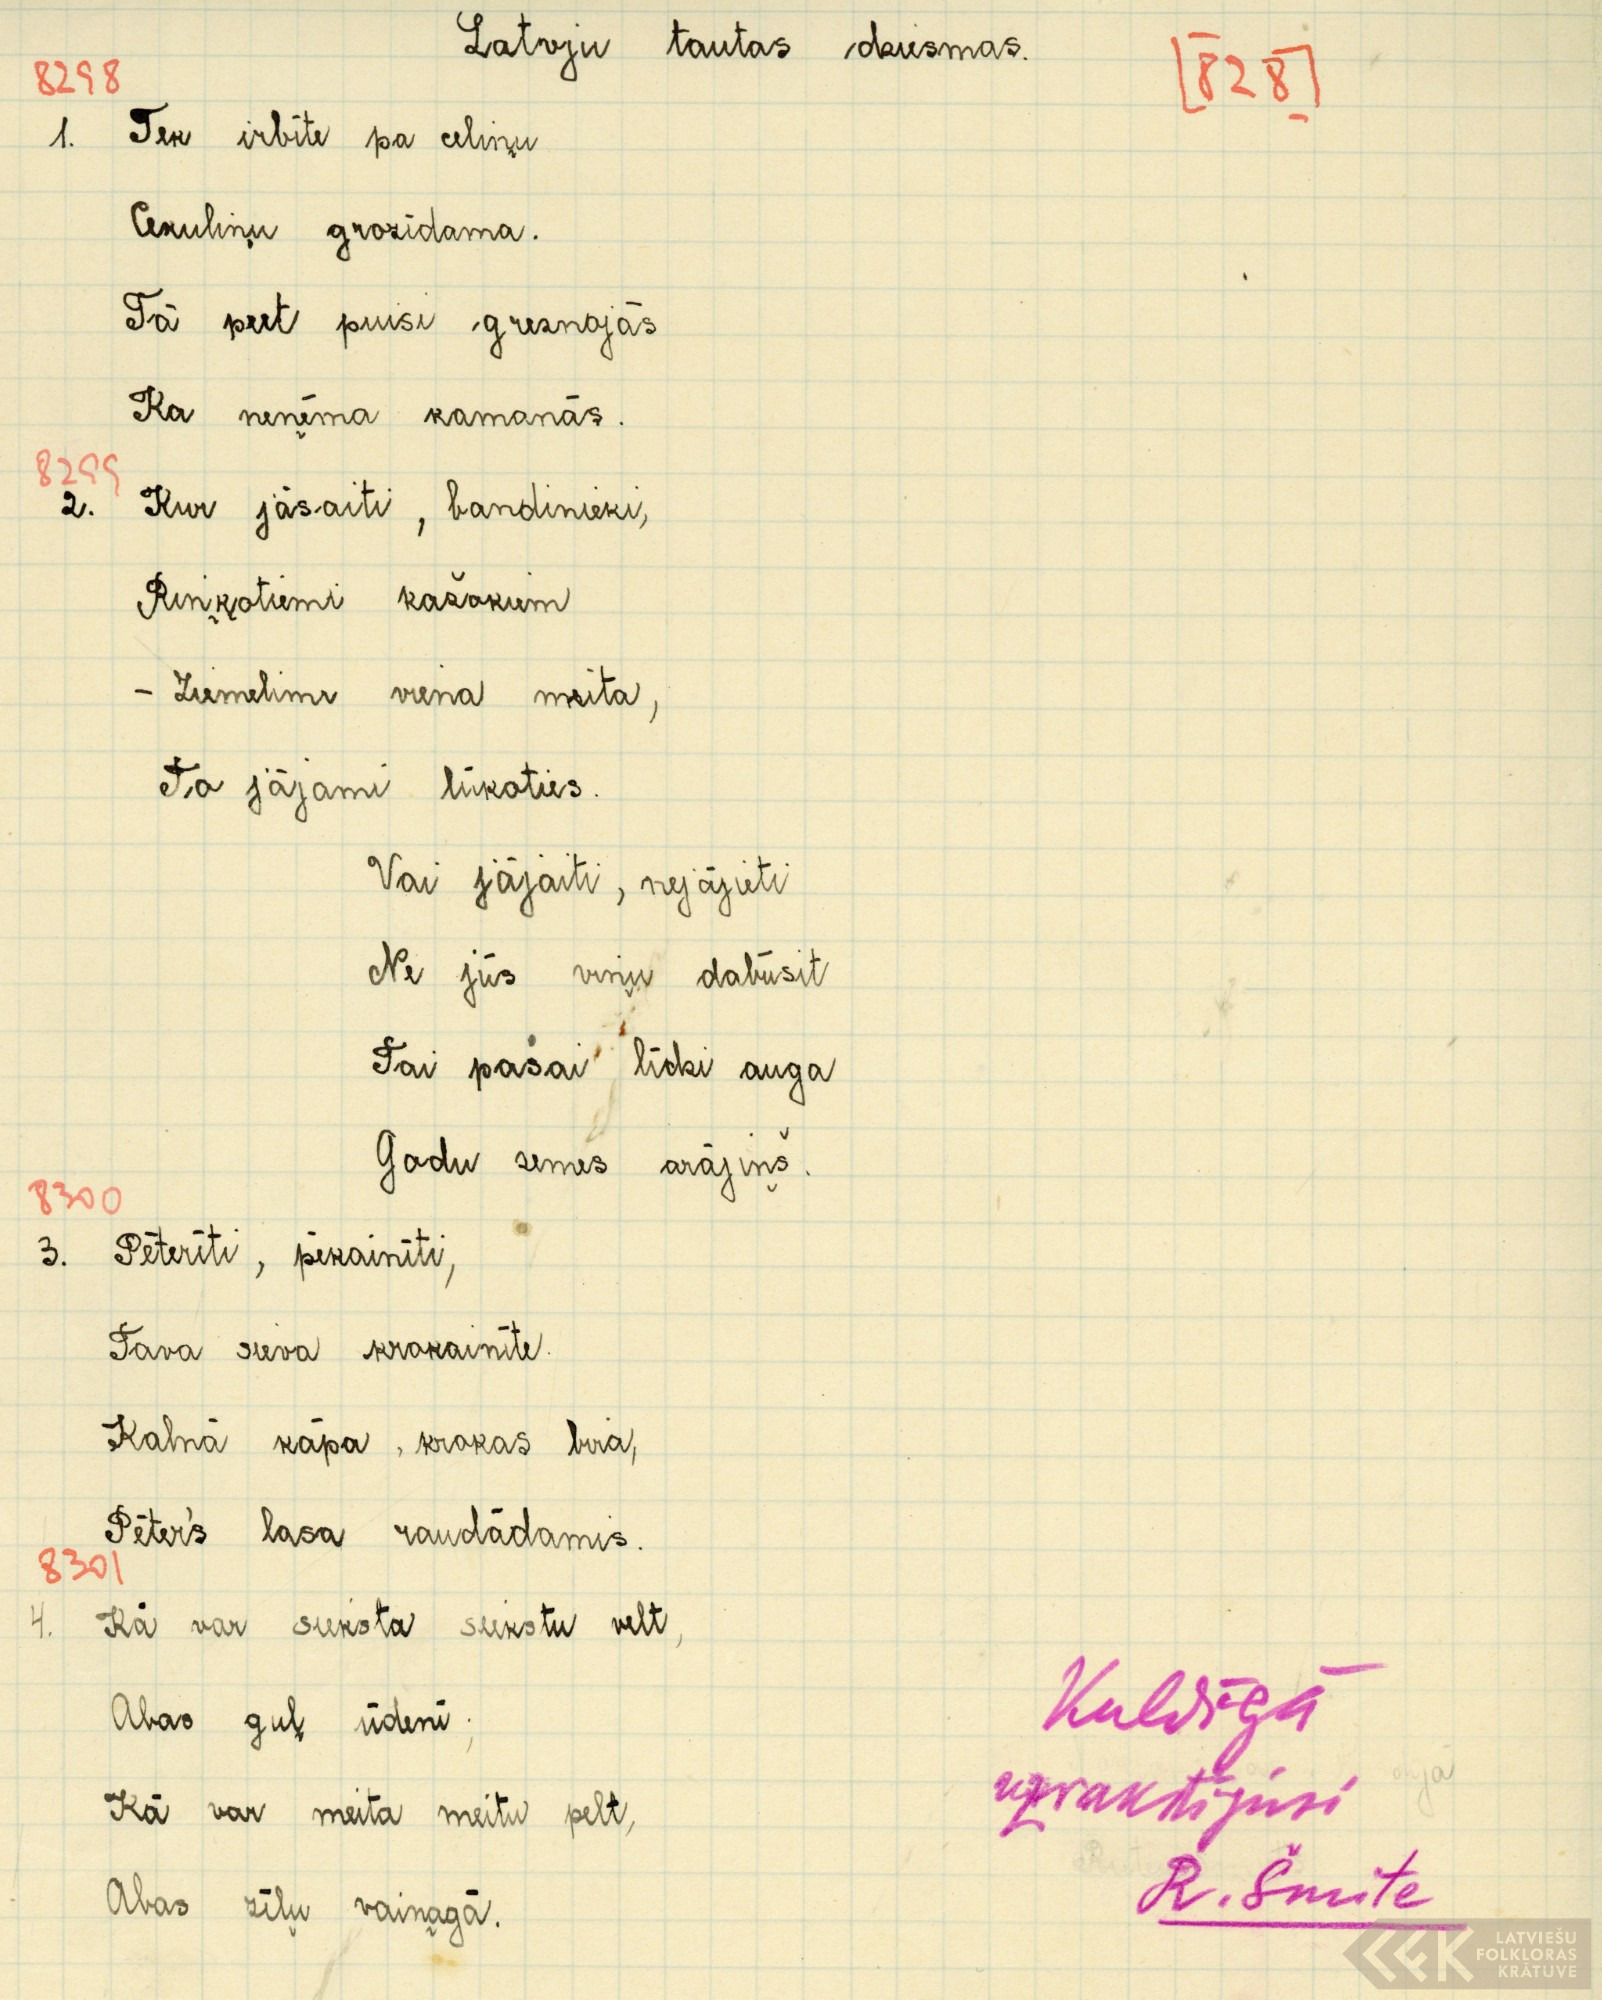 Latvju tautas dziesmas.
[828]
8298
1. Tek irbīte pa celiņu
Cekuliņu grozīdama.
Tā pret puisi greznojās
Ka neņēma kamanās.
8299
2. Kur jāsaiti, bandinieki,
Riņķotiemi kažokiem
- Ziemelimi viena meita,
To jājami lūkoties.
Vai jājaiti, nejājieti
Ne jūs viņu dabūsit
Tai pašai līdzi auga
Godu zemes arājiņš.
8300
3. Pēterīti, pēkainīti,
Tava sieva krokainīte.
Kalnā kāpa, krokas bira,
Pēter's lasa raudādamis.
8301
4. Kā var sieksta siekstu velt,
Abas guļ ūdenī;
Kā var meita meitu pelt,
Abas zīļu vaiņagā.
Kuldīgā
uzrakstījusi
R. Šmite
LATVIEŠU
FOLKLORAS
KRĀTUVE